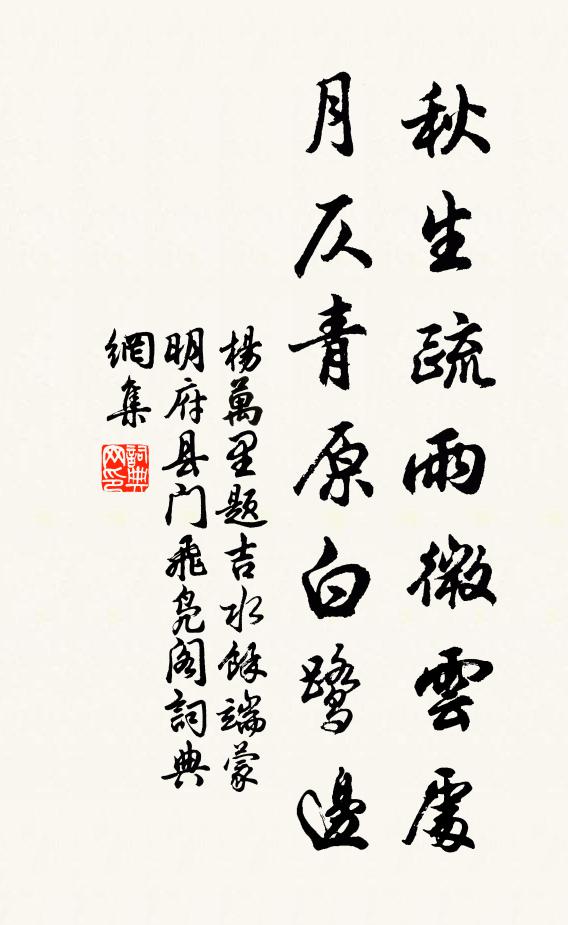 秋生疏雨微雲處
月仄青原白鷺邊
楊萬里题吉水餘端蒙
明府县门飛凫阁詞典
網集
詞典
网印